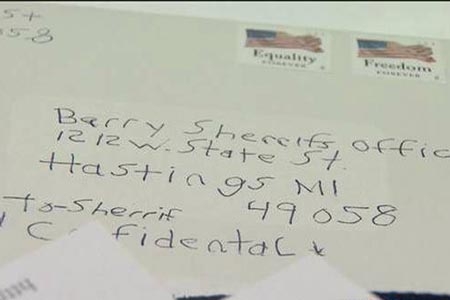 st
058
Equality
FOREVER
Freedom
FOREVER
Barry Sherrifs Offic
1212 W. State St.
Hastings MI
49058
To-Sherrif
* Confidental *